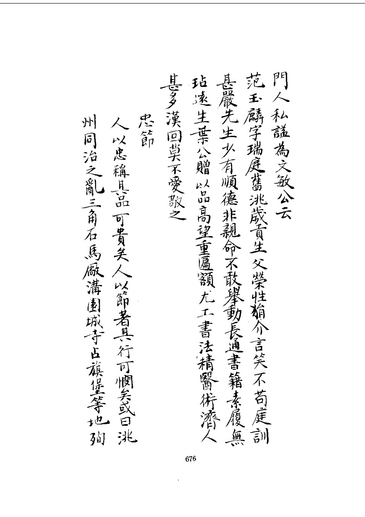 門人私謚為文敏公云
范玉麟字瑞庭舊洮歲貢生父榮性狷介言笑不苟庭訓
甚嚴先生少有順德非親命不敢舉動長通書籍素履無
玷遠生葉公贈以品高望重匾額尤工書法精醫術濟人
甚多漢回莫不愛敬之
忠節
人以忠稱其品可貴矣人以節著其行可憫矣或曰洮
州同治之亂三角石馬廠溝園城寺占旗堡等地殉
676